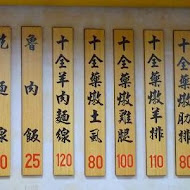 十全藥燉肋排
80
十全藥燉羊排
110
十全藥燉雞腿
100
十全藥燉土虱
80
十全羊肉麵線
120
魯肉飯
25